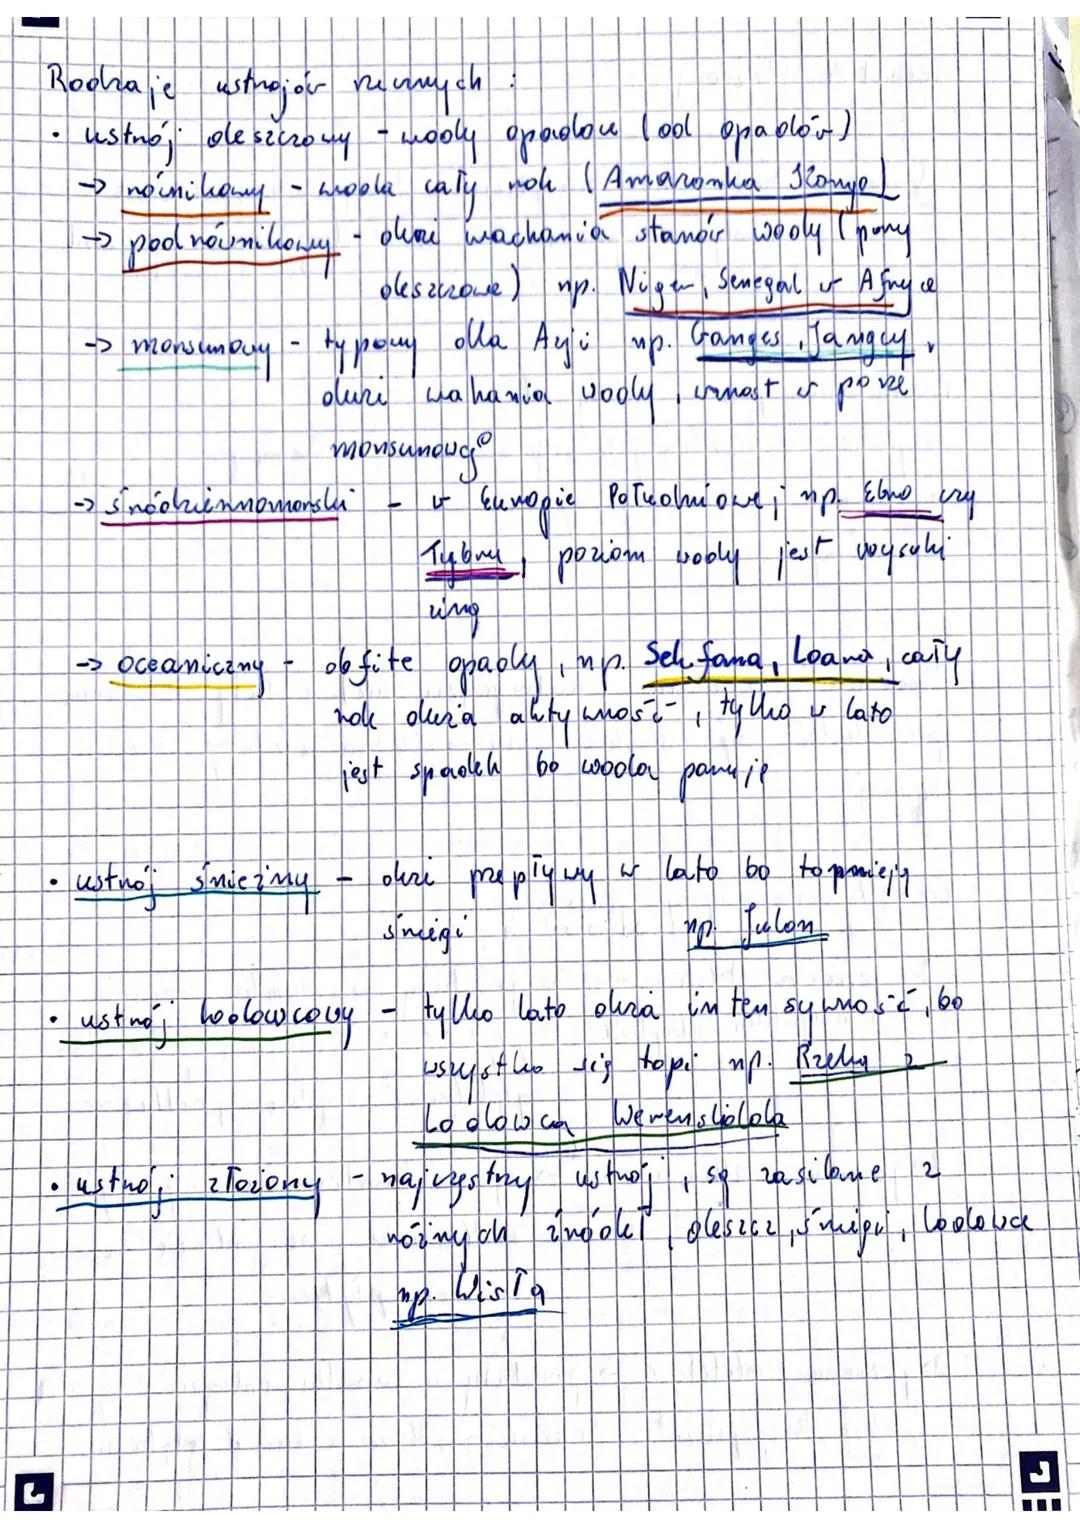 Rodzaje ustrojów rzecznych :
• ustrój deszczowy - wody opadow (od opadów)
→ równikowy - woda cały rok (Amazonka, Kongo)
→ podrównikowy - duże wachania stanów wody (pory
deszczowe) np. Niger, Senegal w Afryce
→ monsunowy - typowy dla Azji np. Ganges, Jangcy,
duże wahania wody, wzrost w porze
monsunowej
→ śródziemnomorski - w Europie Południowej np. Ebro czy
Tybru, poziom wody jest wysoki
zimą
→ oceaniczny - obfite opady, np. Sekfana, Loara, cały
rok duża aktywność, tylko w lato
jest spadek bo woda paruje
• ustrój śnieżny - duże przepływy w lato bo topnieją
śniegi np. Julon
• ustrój lodowcowy - tylko lato duża intensywność, bo
wszystko się topi np. Rzeka z
Lodowca Werenskiolda
• ustrój złożony - najczęstszy ustrój, są zasilane z
różnych źródeł, deszcz, śniegi, lodowce
np. Wisła